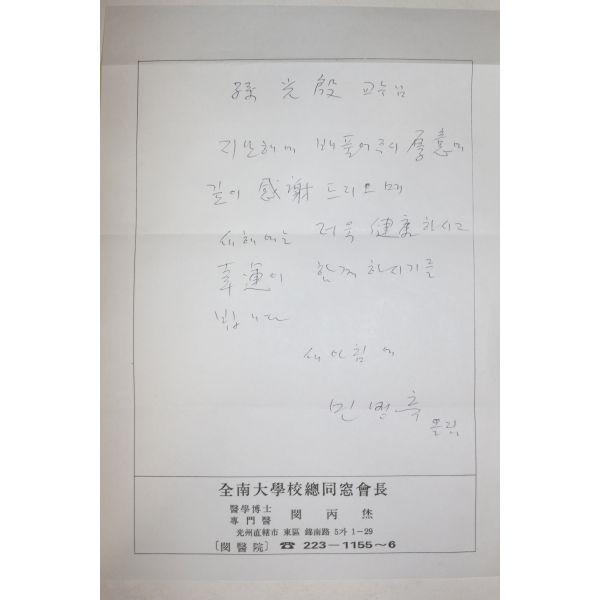 孫光殷 교수님
지난해에 베풀어주신 厚意에
깊이 感謝 드리오며
새해에는 더욱 健康하시고
幸運이 함께 하시기를
빕니다
새아침에
민병휴
드림
全南大學校總同窓會長
醫學博士
專門醫 閔丙烋
光州直轄市 東區 錦南路 5가 1-29
〔閔醫院〕 ☎ 223-1155~6